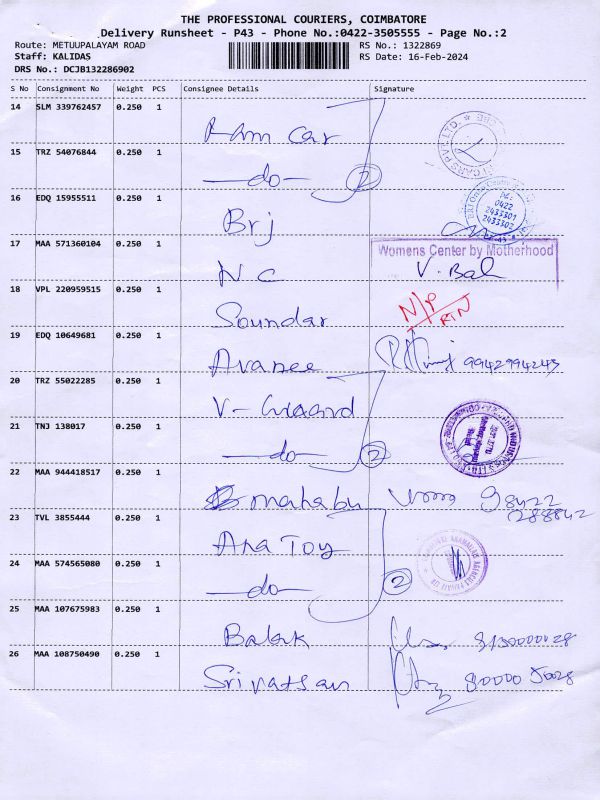 THE PROFESSIONAL COURIERS, COIMBATORE
Delivery Runsheet - P43 - Phone No.:0422-3505555 - Page No.:2
Route: METUUPALAYAM ROAD RS No.: 1322869
Staff: KALIDAS RS Date: 16-Feb-2024
DRS No.: DCJB132286902
S No Consignment No Weight PCS Consignee Details Signature
14 SLM 339762457 0.250 1
Ram Car
CARS PVT LTD
15 TRZ 54076844 0.250 1
do 2
16 EDQ 15955511 0.250 1
0422
2433301
2433302
Brj
17 MAA 571360104 0.250 1
Womens Center by Motherhood
N C V. Bal
18 VPL 220959515 0.250 1
Soundar N/P RTN
19 EDQ 10649681 0.250 1
Avanee 9942994243
20 TRZ 55022285 0.250 1
V-Guard
21 TNJ 138017 0.250 1
do 2
22 MAA 944418517 0.250 1
mahabu 98422
288842
23 TVL 3855444 0.250 1
Ana Toy
24 MAA 574565080 0.250 1
do 2
25 MAA 107675983 0.250 1
Balak
26 MAA 108750490 0.250 1
Srivatsan 80000